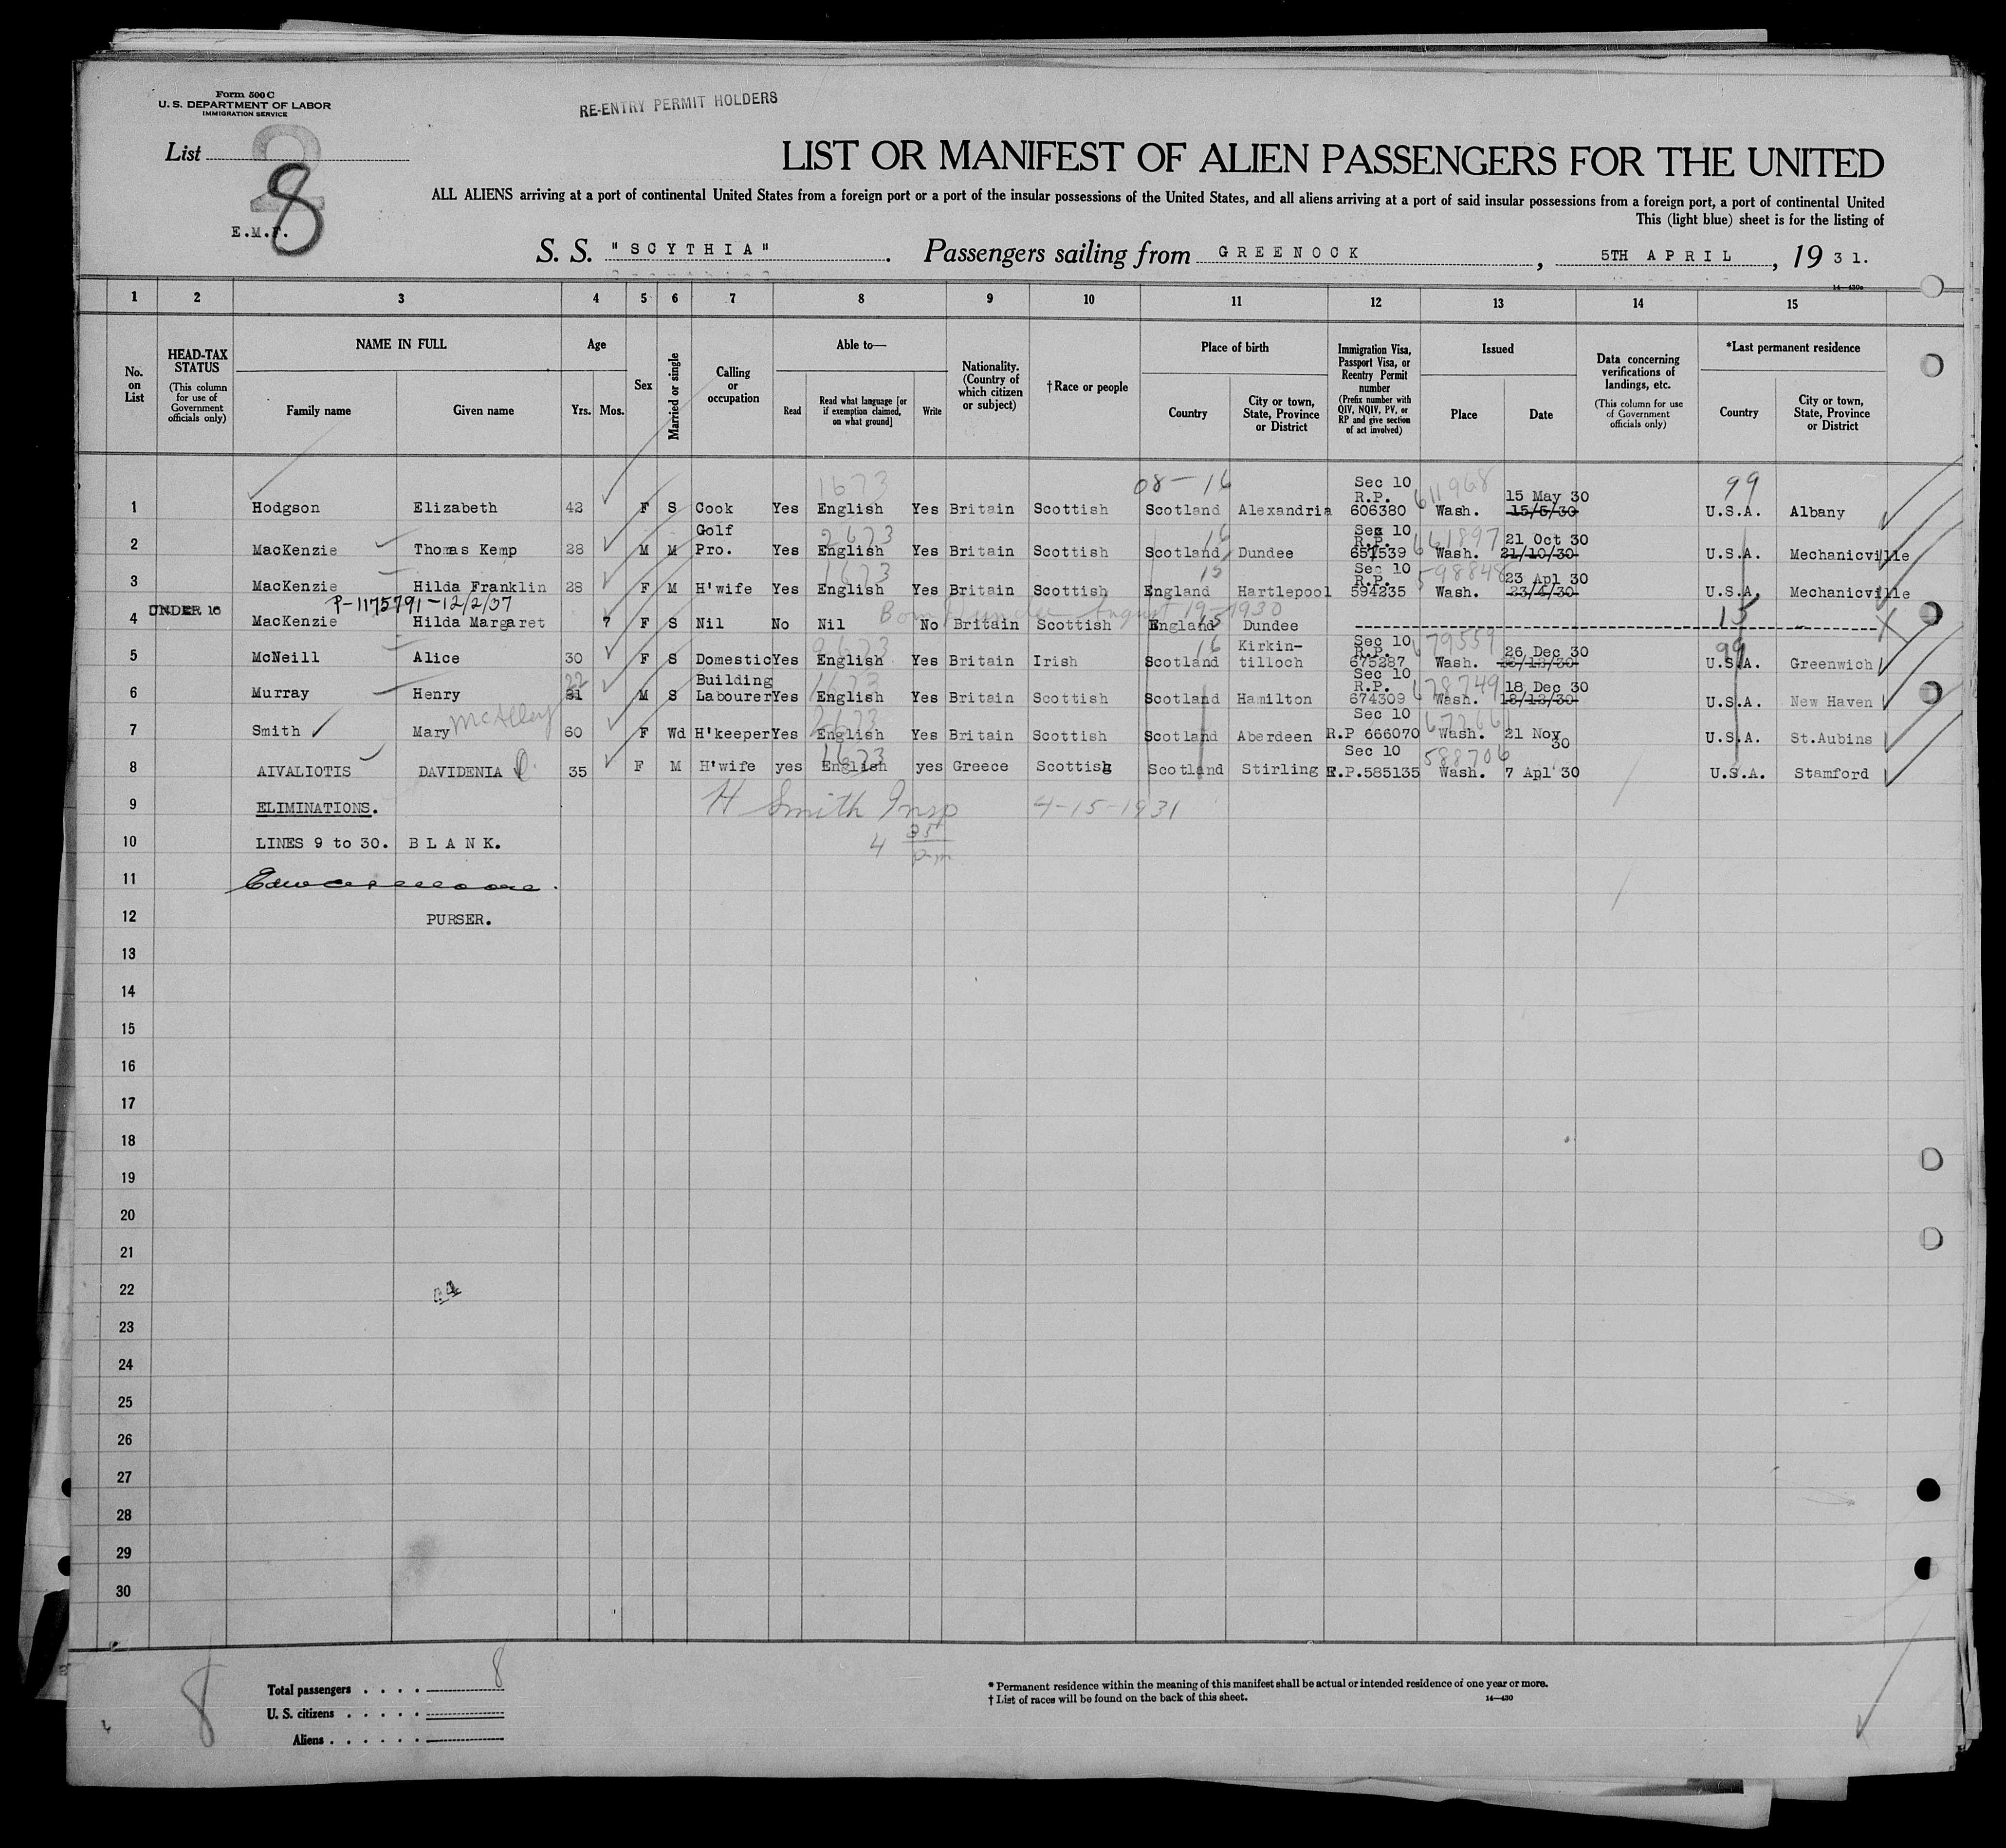 Form 500 C
U. S. DEPARTMENT OF LABOR
IMMIGRATION SERVICE
RE-ENTRY PERMIT HOLDERS
List 8
E.M.F.
LIST OR MANIFEST OF ALIEN PASSENGERS FOR THE UNITED
ALL ALIENS arriving at a port of continental United States from a foreign port or a port of the insular possessions of the United States, and all aliens arriving at a port of said insular possessions from a foreign port, a port of continental United
This (light blue) sheet is for the listing of
S. S. "SCYTHIA". Passengers sailing from GREENOCK, 5TH APRIL, 1931.
14—430c
1 2 3 4 5 6 7 8 9 10 11 12 13 14 15
No. on List
HEAD-TAX STATUS (This column for use of Government officials only)
NAME IN FULL
Family name Given name
Age
Yrs. Mos.
Sex
Married or single
Calling or occupation
Able to—
Read
Read what language [or if exemption claimed, on what ground]
Write
Nationality. (Country of which citizen or subject)
†Race or people
Place of birth
Country
City or town, State, Province or District
Immigration Visa, Passport Visa, or Reentry Permit number (Prefix number with QIV, NQIV, PV, or RP and give section of act involved)
Issued
Place Date
Data concerning verifications of landings, etc. (This column for use of Government officials only)
*Last permanent residence
Country
City or town, State, Province or District
1673 08-16 Sec 10 R.P. 611968 15 May 30 99
1 Hodgson Elizabeth 42 F S Cook Yes English Yes Britain Scottish Scotland Alexandria 606380 Wash. 15/5/30 U.S.A. Albany
Golf 2673 16 Sec 10 R.P. 661897 21 Oct 30
2 MacKenzie Thomas Kemp 28 M M Pro. Yes English Yes Britain Scottish Scotland Dundee 651539 Wash. 21/10/30 U.S.A. Mechanicville
1673 15 Sec 10 R.P. 598848 23 Apl 30
3 MacKenzie Hilda Franklin 28 F M H'wife Yes English Yes Britain Scottish England Hartlepool 594235 Wash. 23/4/30 U.S.A. Mechanicville
UNDER 16 P-1175791-12/2/37 Born Dundee August 19-1930 15
4 MacKenzie Hilda Margaret 7 F S Nil No Nil No Britain Scottish England Dundee
16 Kirkin- Sec 10 R.P. 679559 26 Dec 30 99
5 McNeill Alice 30 F S Domestic Yes English Yes Britain Irish Scotland tilloch 675287 Wash. 26/12/30 U.S.A. Greenwich
22 Building 1673 Sec 10 R.P. 678749 18 Dec 30
6 Murray Henry 31 M S Labourer Yes English Yes Britain Scottish Scotland Hamilton 674309 Wash. 18/12/30 U.S.A. New Haven
McAlley 2673 Sec 10
7 Smith Mary 60 F Wd H'keeper Yes English Yes Britain Scottish Scotland Aberdeen R.P 666070 Wash. 21 Nov 30 U.S.A. St.Aubins
1673 Sec 10 588706
8 AIVALIOTIS DAVIDENIA 35 F M H'wife yes English yes Greece Scottish Scotland Stirling R.P.585135 Wash. 7 Apl 30 U.S.A. Stamford
9 ELIMINATIONS. H Smith Insp 4-15-1931
10 LINES 9 to 30. BLANK. 4 35 pm
11
12 PURSER.
13
14
15
16
17
18
19
20
21
22
23
24
25
26
27
28
29
30
8
Total passengers . . . . 8
U. S. citizens . . . . .
Aliens . . . . . .
* Permanent residence within the meaning of this manifest shall be actual or intended residence of one year or more.
† List of races will be found on the back of this sheet.
14—430